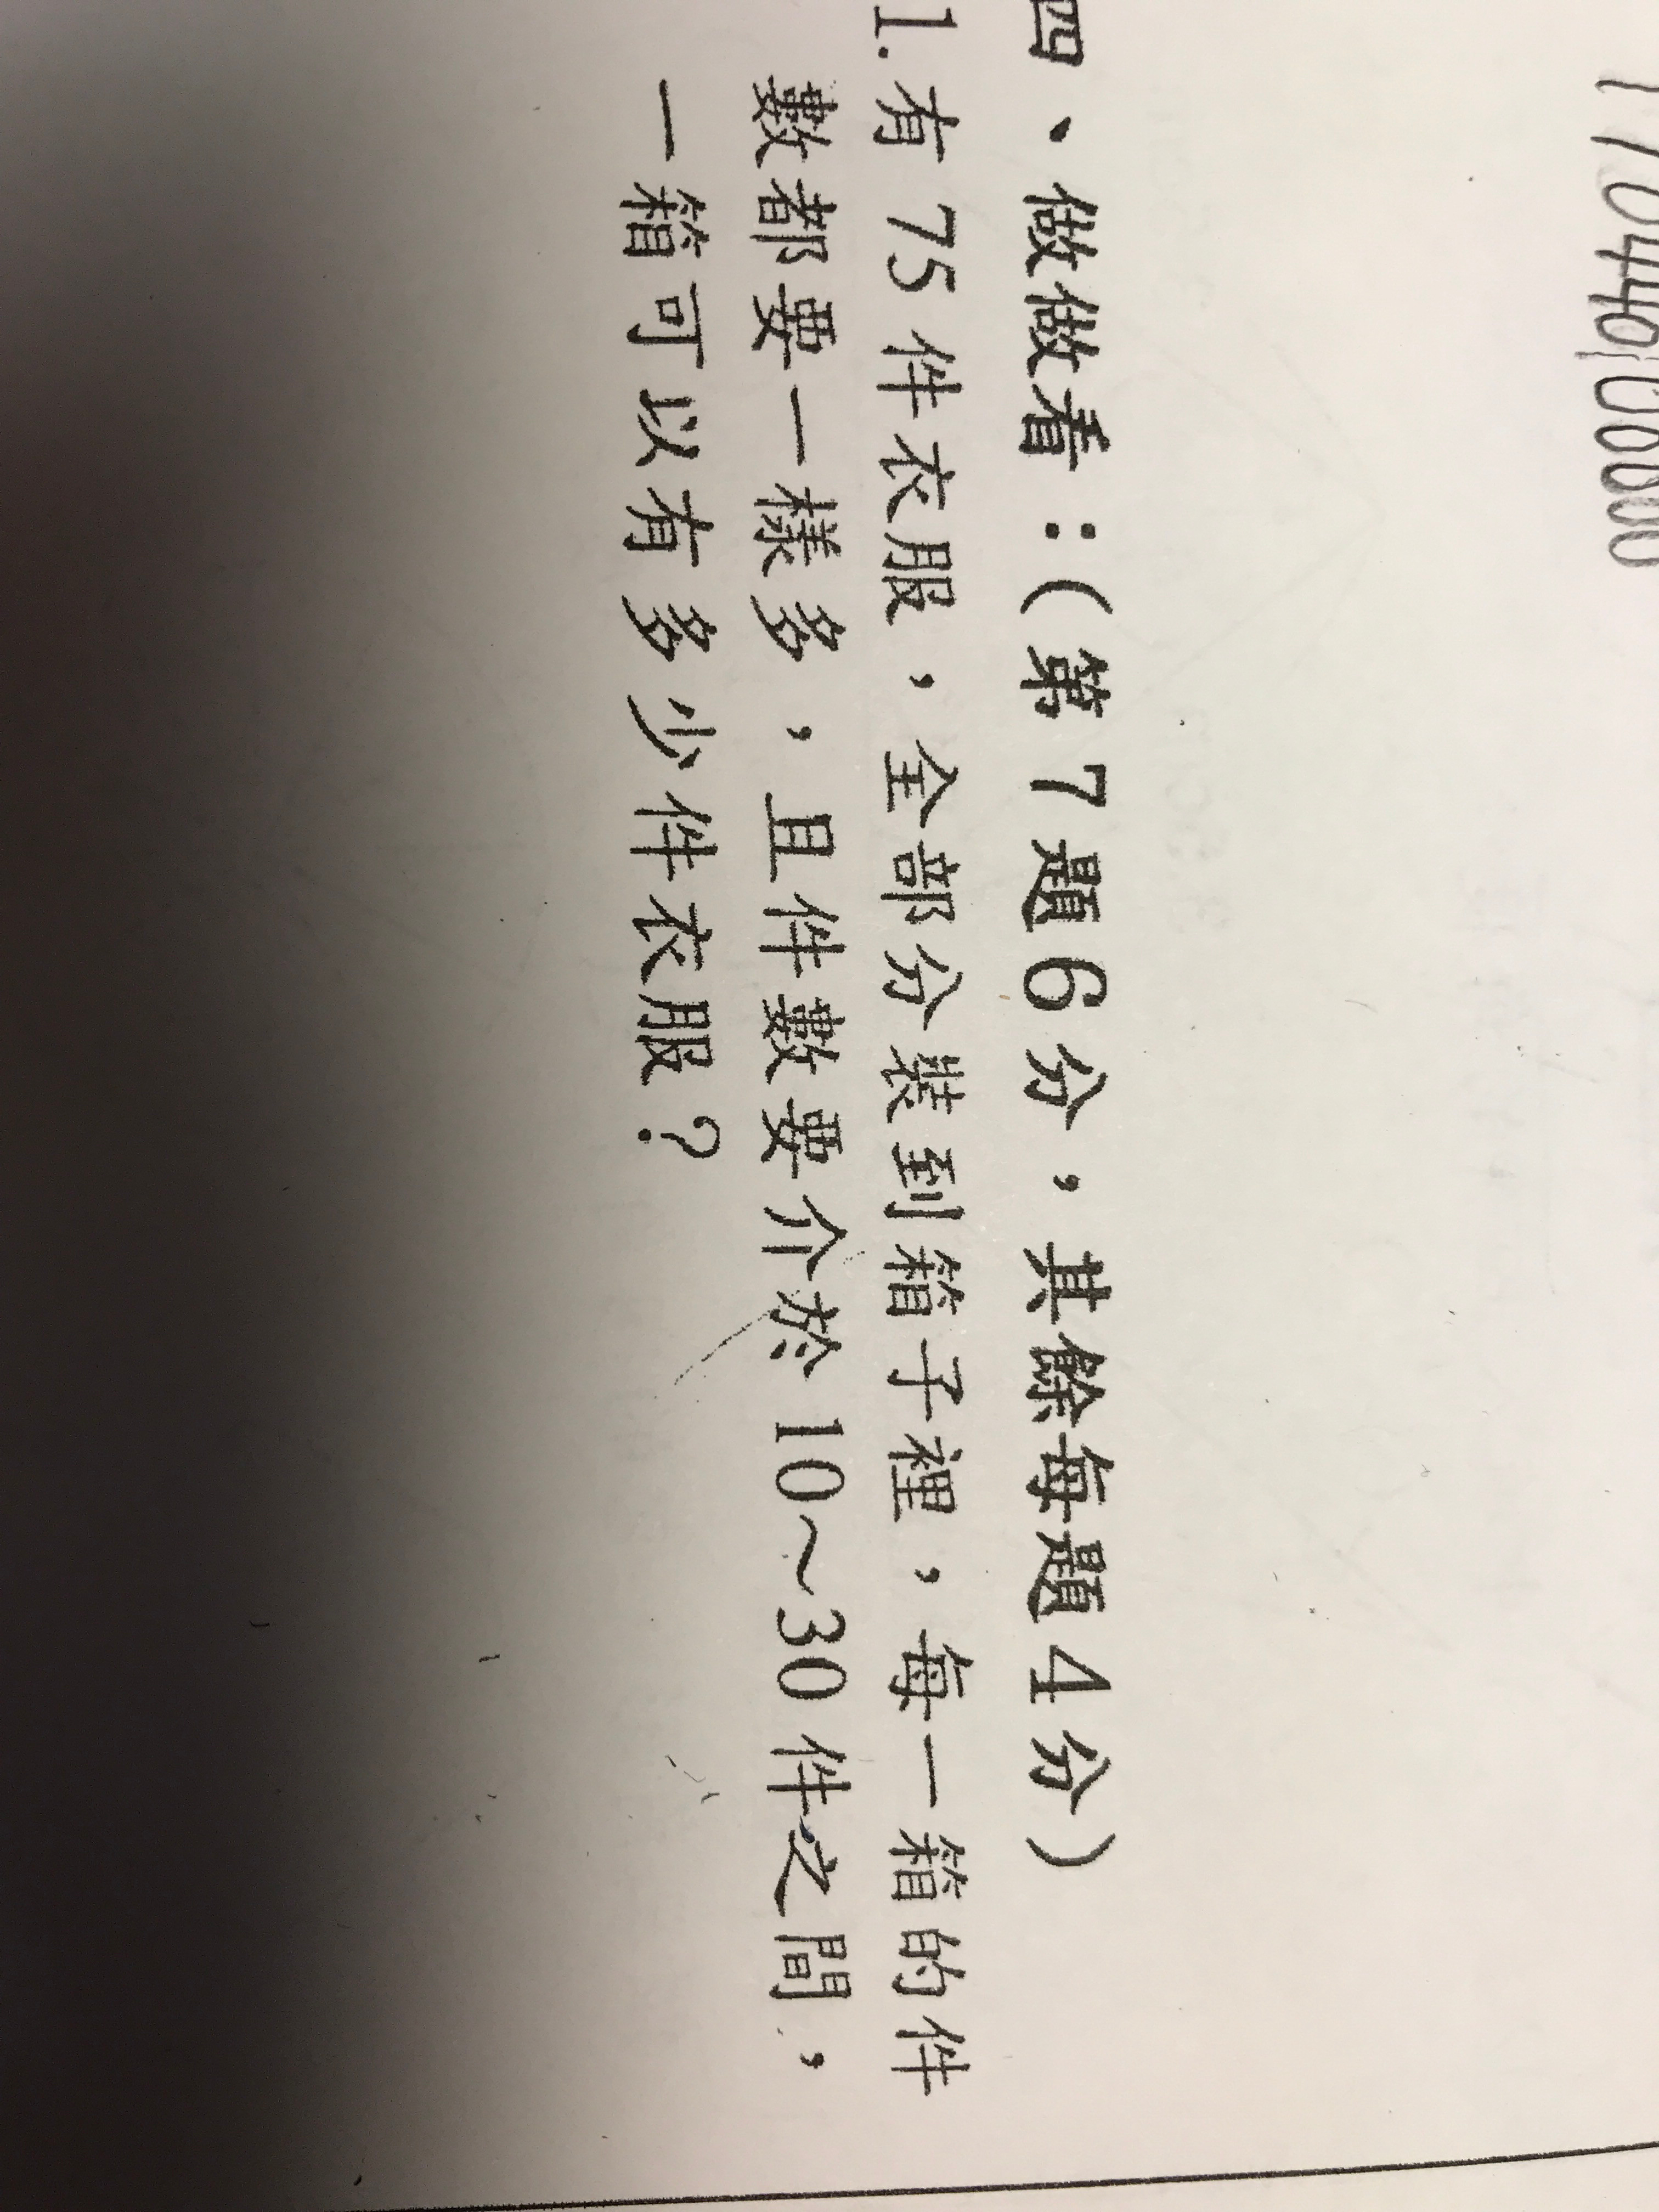 四、做做看：(第7題6分，其餘每題4分)
1.有 75 件衣服，全部分裝到箱子裡，每一箱的件
數都要一樣多，且件數要介於 10~30 件之間，
一箱可以有多少件衣服？